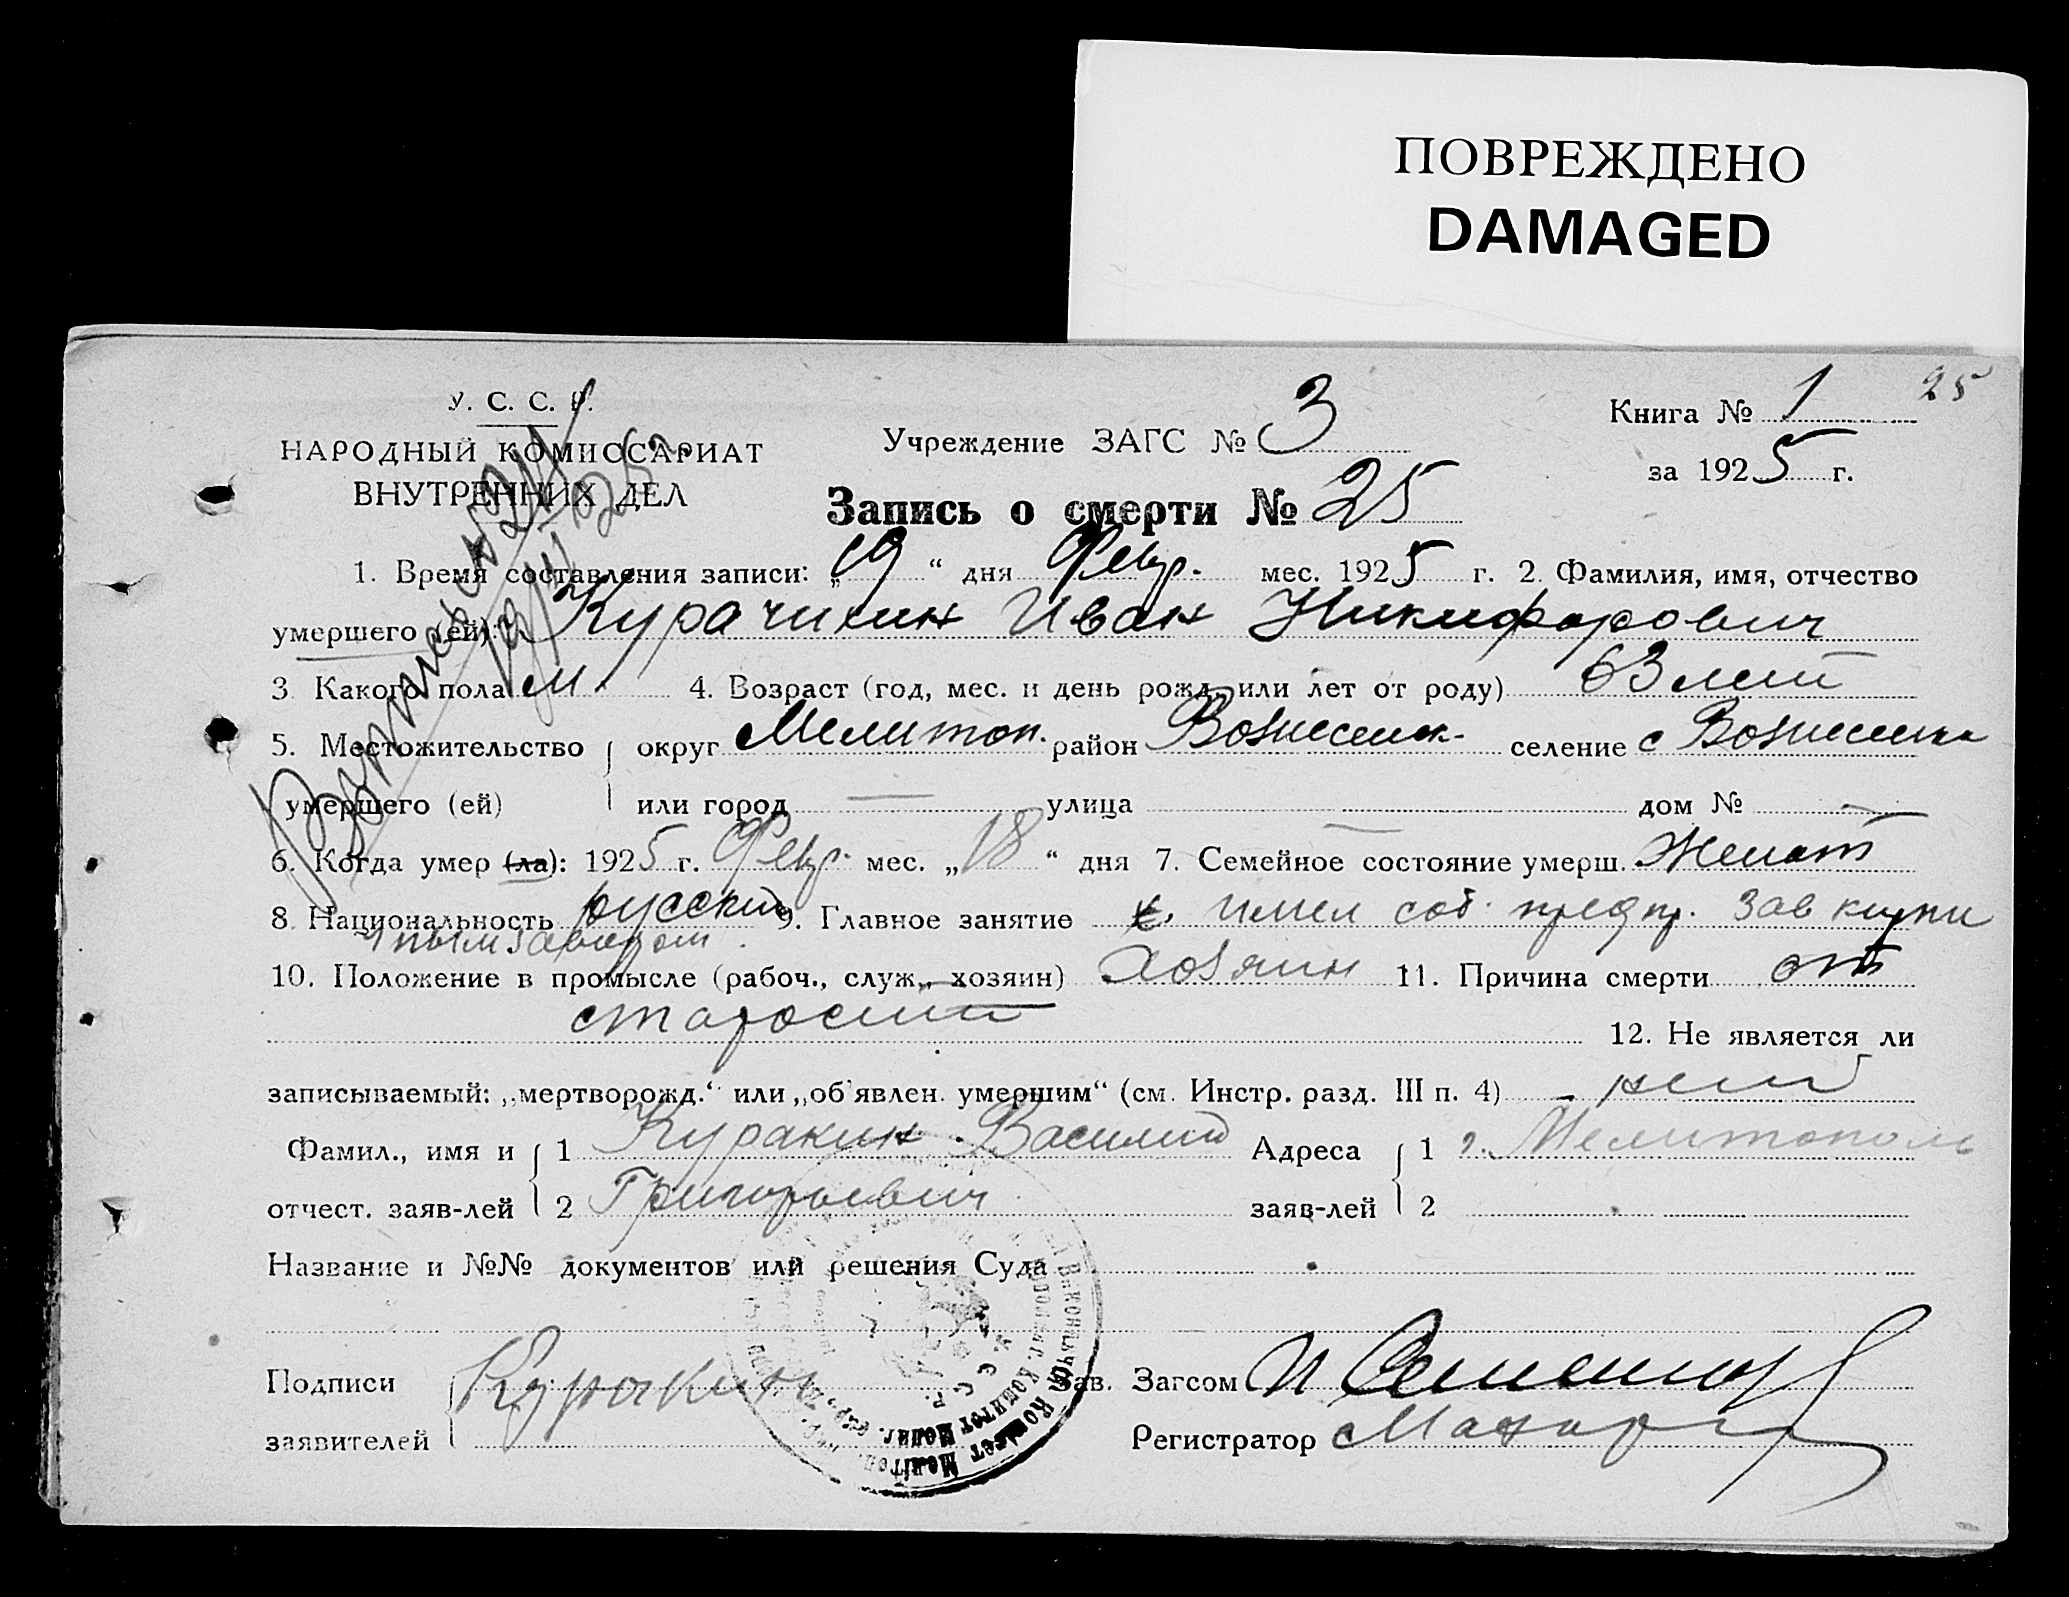 ПОВРЕЖДЕНО
DAMAGED
25
У. С. С. Р.
НАРОДНЫЙ КОМИССАРИАТ
ВНУТРЕННИХ ДЕЛ
Учреждение ЗАГС № 3
Книга № 1
за 1925 г.
Запись о смерти № 25
1. Время составления записи: „19“ дня Февр. мес. 1925 г. 2. Фамилия, имя, отчество
умершего (ей): Иван Никифорович
3. Какого пола м. 4. Возраст (год, мес. и день рожд. или лет от роду) 63 лет
5. Местожительство округ Мелитоп. район Вознесенск. селение с Вознесенка
умершего (ей) или город — улица — дом № —
6. Когда умер (ла): 1925 г. Февр. мес. „18“ дня 7. Семейное состояние умерш. Женат
8. Национальность русский 9. Главное занятие имел соб. предпр. зав
10. Положение в промысле (рабоч., служ., хозяин) Хозяин 11. Причина смерти от
старости
12. Не является ли
записываемый: „мертворожд.“ или „об'явлен. умершим“ (см. Инстр. разд. III п. 4) нет
Фамил., имя и 1 Куракин Василий Адреса 1 г. Мелитополь
отчест. заяв-лей 2 Григорьевич заяв-лей 2
Название и №№ документов или решения Суда
Подписи Куракин Зав. Загсом
заявителей Регистратор